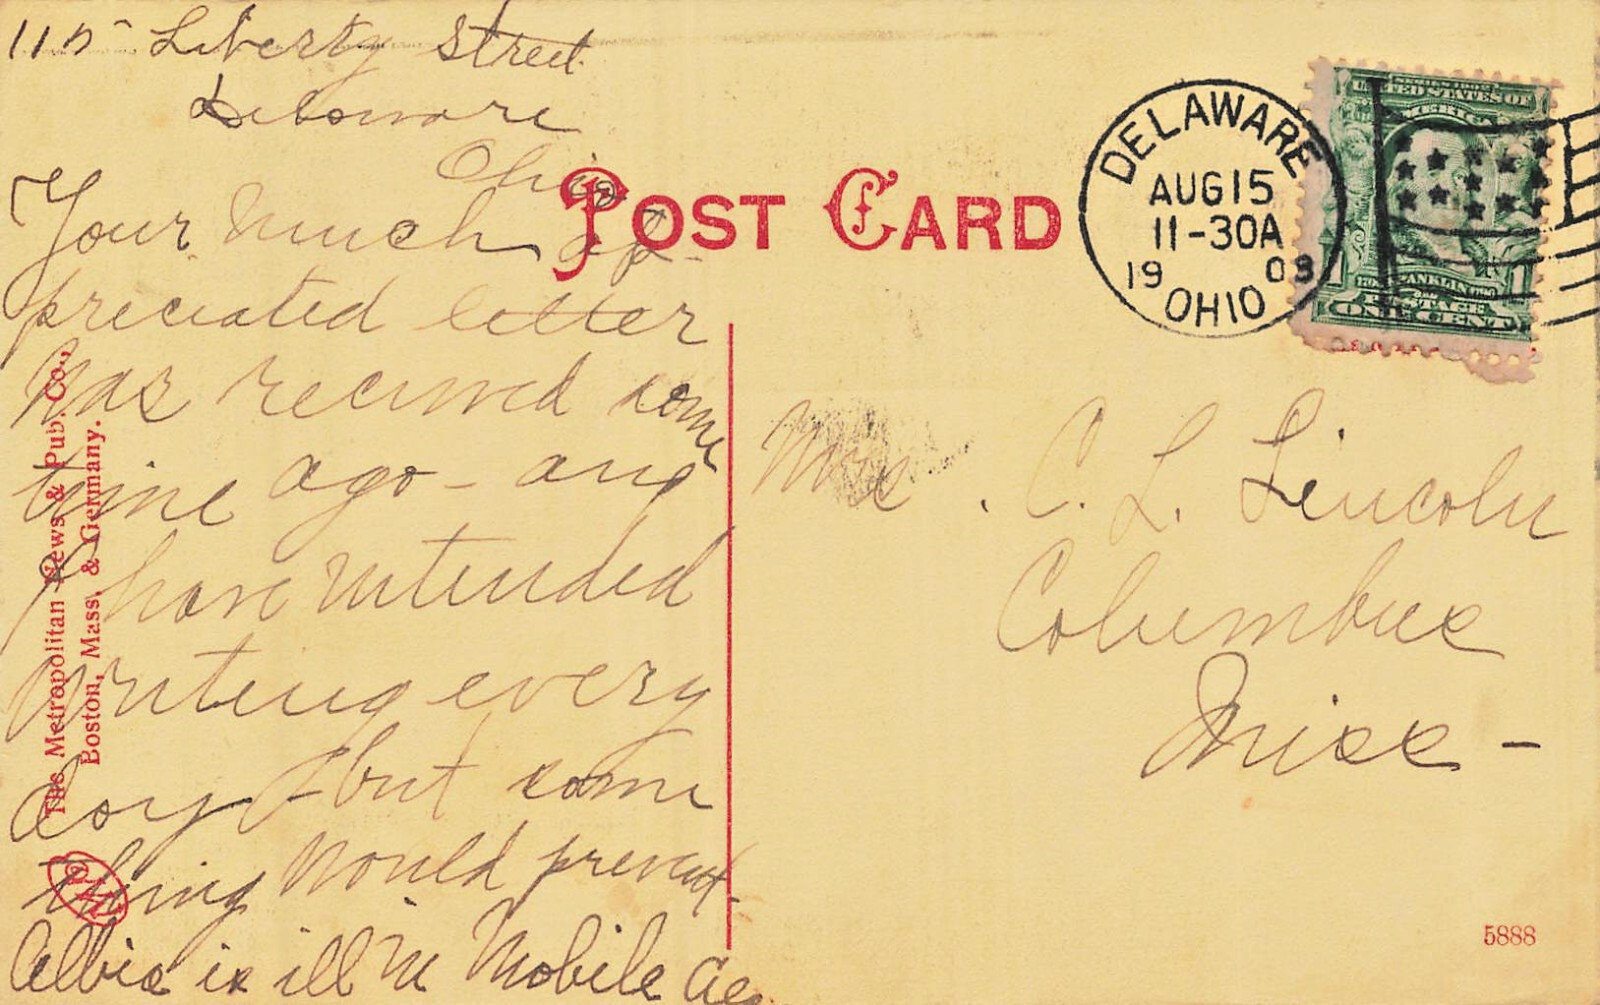 115 Liberty Street
Delaware
Ohio
Your much ap-
preciated letter
was received some
time ago - and
I have intended
writing every
day - but some
thing would prevent.
Albie is ill in Mobile
POST CARD
DELAWARE
AUG 15
11-30A
19 08
OHIO
SERIES 1902
UNITED STATES OF
AMERICA
FRANKLIN
ONE CENT
Mrs. C. L. Lincoln
Columbus
Miss -
The Metropolitan News & Pub. Co.,
Boston, Mass. & Germany.
5888